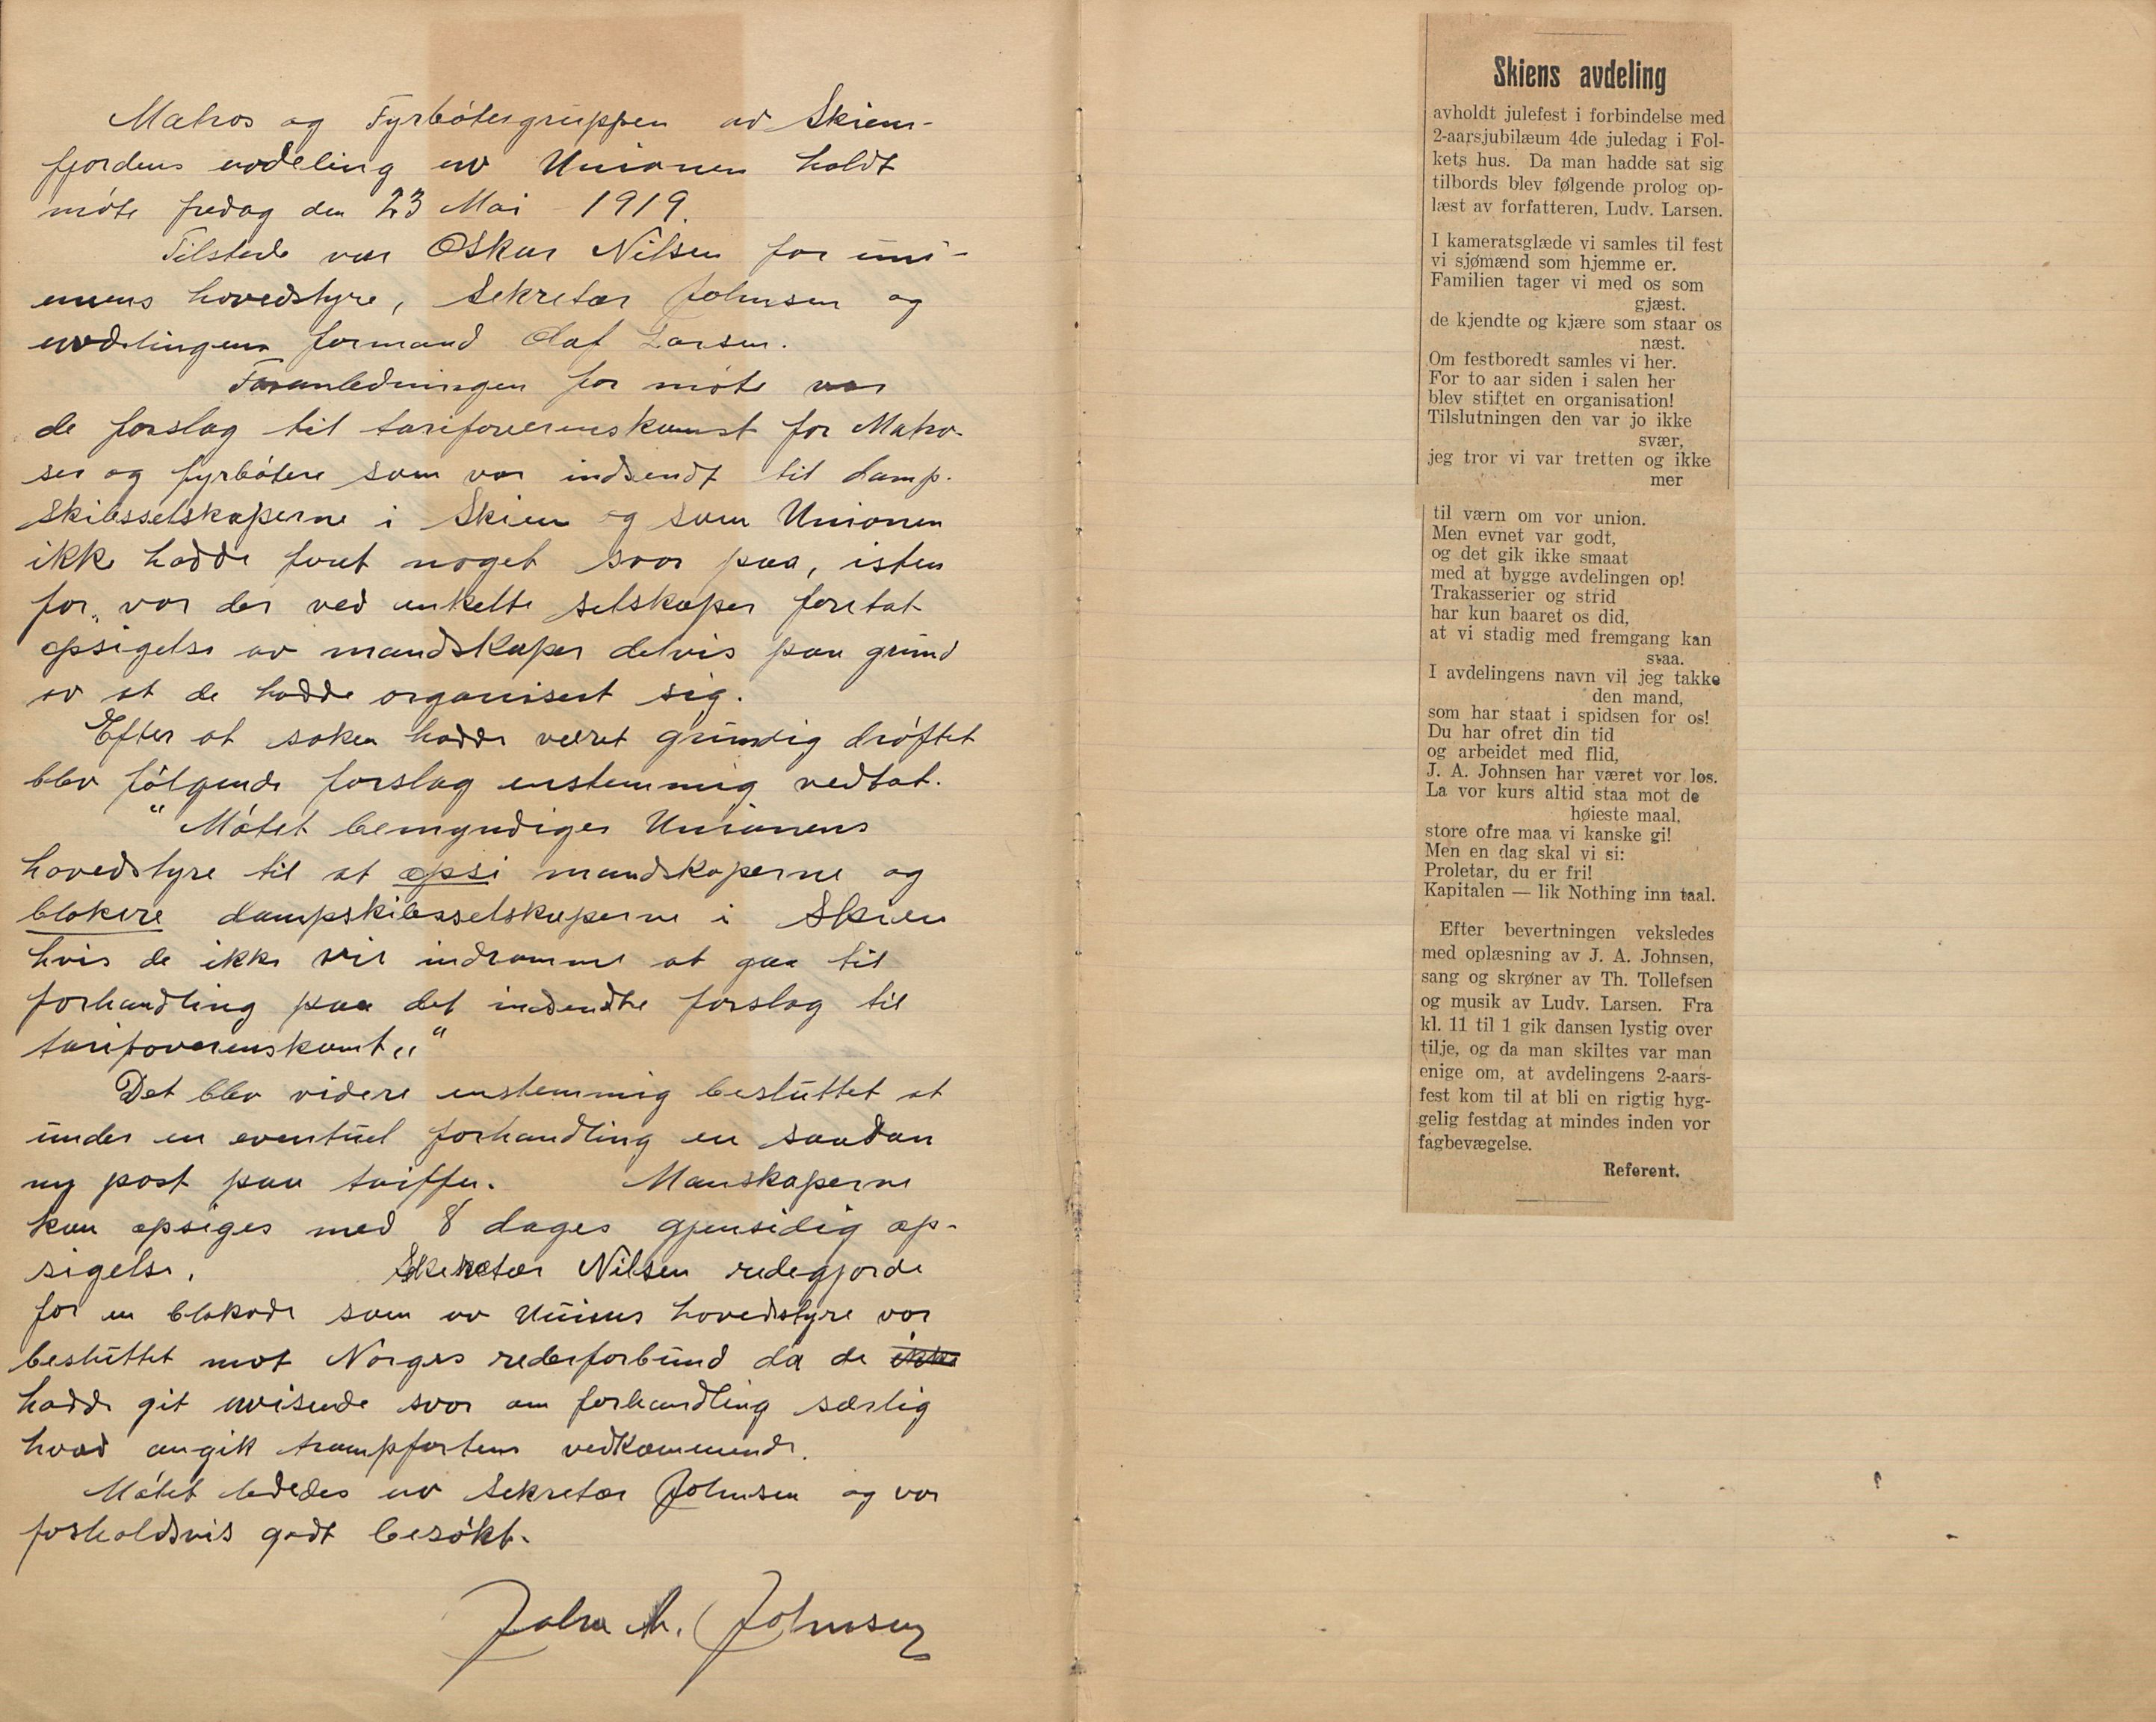 Matros og Fyrbötergruppen av Skiens-
fjordens avdeling av Unionen holdt
möte fredag den 23 Mai 1919.
Tilstede var Oskar Nilsen for uni-
onens hovedstyre, Sekretær Johnsen og
avdelingens formand Olaf Larsen.
Foranledningen for möte var
de forslag til tarifoverenskomst for Matro-
ser og fyrbötere som var indsendt til damp-
skibsselskaperne i Skien og som Unionen
ikke hadde faaet noget svar paa, isten
for, var der ved enkelte selskaper foretat
opsigelse av mandskaper delvis paa grund
av at de hadde organisert sig.
Efter at saken hadde været grundig dröftet
blev fölgende forslag enstemmig vedtat.
"Mötet bemyndiger Unionens
hovedstyre til at opsi mandskaperne og
blokere dampskibsselskaperne i Skien
hvis de ikke vil indrømme at gaa til
forhandling paa det indsendte forslag til
tarifoverenskomt."
Det blev videre enstemmig besluttet at
under en eventuel forhandling en saadan
ny post paa tariffen. Manskaperne
kan opsiges med 8 dages gjensidig op-
sigelse. Sekretær Nilsen redegjorde
for en blokade som av Unions hovedstyre var
besluttet mot Norges rederforbund da de ikke
hadde git avvisende svar om forhandling særlig
hvad angik trampfartens vedkommende.
Mötet lededes av Sekretær Johnsen og var
forholdsvis godt besökt.
John A. Johnsen
Skiens avdeling
avholdt julefest i forbindelse med
2-aarsjubilæum 4de juledag i Fol-
kets hus. Da man hadde sat sig
tilbords blev følgende prolog op-
læst av forfatteren, Ludv. Larsen.
I kameratsglæde vi samles til fest
vi sjømænd som hjemme er.
Familien tager vi med os som
gjæst.
de kjendte og kjære som staar os
næst.
Om festboredt samles vi her.
For to aar siden i salen her
blev stiftet en organisation!
Tilslutningen den var jo ikke
svær,
jeg tror vi var tretten og ikke
mer
til værn om vor union.
Men evnet var godt,
og det gik ikke smaat
med at bygge avdelingen op!
Trakasserier og strid
har kun baaret os did,
at vi stadig med fremgang kan
staa.
I avdelingens navn vil jeg takke
den mand,
som har staat i spidsen for os!
Du har ofret din tid
og arbeidet med flid,
J. A. Johnsen har været vor los.
La vor kurs altid staa mot de
høieste maal,
store ofre maa vi kanske gi!
Men en dag skal vi si:
Proletar, du er fri!
Kapitalen — lik Nothing inn taal.
Efter bevertningen veksledes
med oplæsning av J. A. Johnsen,
sang og skrøner av Th. Tollefsen
og musik av Ludv. Larsen. Fra
kl. 11 til 1 gik dansen lystig over
tilje, og da man skiltes var man
enige om, at avdelingens 2-aars-
fest kom til at bli en rigtig hyg-
gelig festdag at mindes inden vor
fagbevægelse.
Referent.